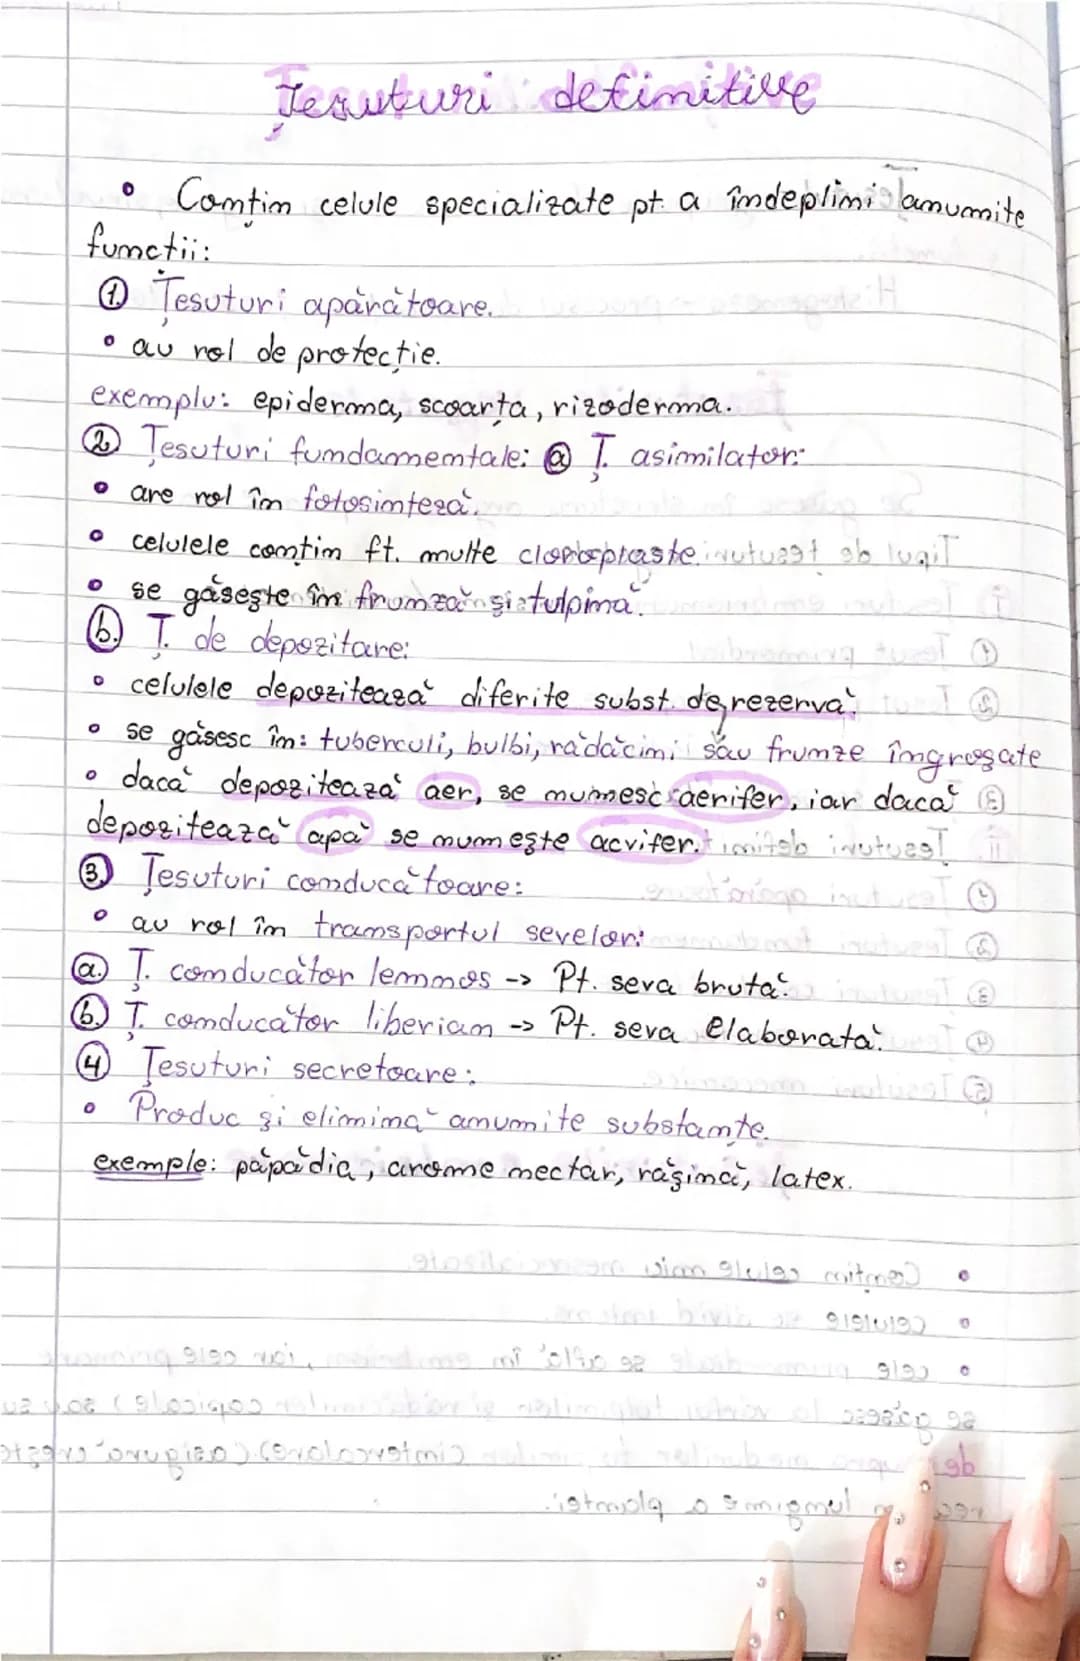 Țesuturi definitive
• Conțin celule specializate pt. a îndeplini anumite
funcții:
① Țesuturi apărătoare.
• au rol de protecție.
exemplu: epiderma, scoarța, rizoderma.
② Țesuturi fundamentale: ⓐ Ț. asimilator:
• are rol în fotosinteză.
• celulele conțin ft. multe cloroplaste.
• se găsește în frunză și tulpină.
ⓑ. Ț. de depozitare:
• celulele depozitează diferite subst. de rezervă.
• se găsesc în: tuberculi, bulbi, rădăcini sau frunze îngroșate
• dacă depozitează aer, se numesc aerifer, iar dacă
depozitează apă se numește acvifer.
③ Țesuturi conducătoare:
• au rol în transportul sevelor:
ⓐ. Ț. conducător lemnos -> Pt. seva brută.
ⓑ. Ț. conducător liberian -> Pt. seva elaborată.
④ Țesuturi secretoare:
• Produc și elimină anumite substanțe.
exemple: păpădia, arome nectar, rășină, latex.